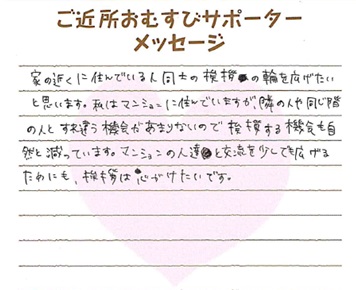 ご近所おむすびサポーター
メッセージ
家の近くに住んでいる人同士の挨拶の輪を広げたい
と思います。私はマンションに住んでいますが、隣の人や同じ階
の人とすれ違う機会があまりないので挨拶する機会も自
然と減っています。マンションの人達と交流を少しでも広げる
ためにも、挨拶は心がけたいです。